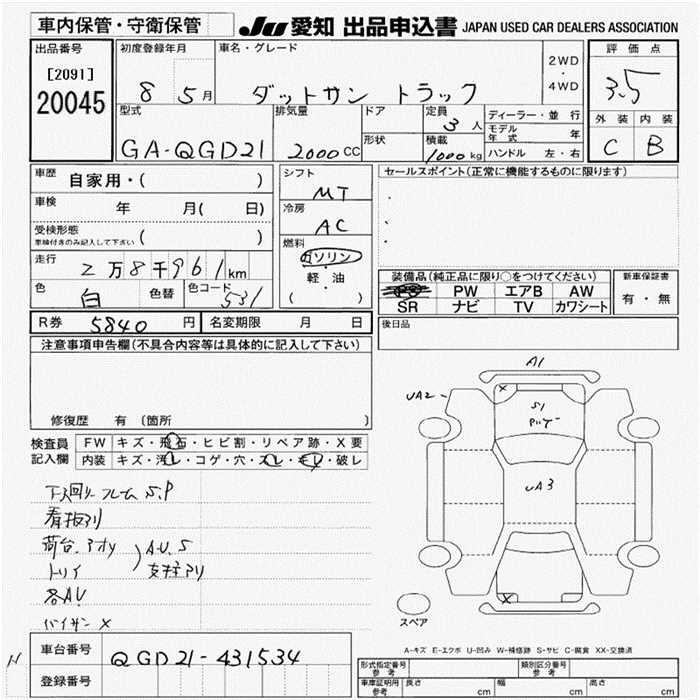 車内保管・守衛保管
JU 愛知 出品申込書 JAPAN USED CAR DEALERS ASSOCIATION
出品番号
[2091]
20045
初度登録年月
8 5月
車名・グレード
ダットサン トラック
2WD
・
4WD
評価点
3.5
外装 内装
C B
型式
GA-QGD21
排気量
2000 CC
ドア
形状
定員
3人
積載
1000kg
ディーラー・並行
モデル年式 年
ハンドル 左・右
車歴 自家用・( )
車検 年 月( 日)
受検形態
車検付きのみ記入して下さい ( )
走行 2万8千961km
色 白 色替 色コード 531
シフト
MT
冷房
AC
燃料
ガソリン
・
軽・油
( )
セールスポイント(正常に機能するものに限ります)
・
・
・
装備品(純正品に限り○をつけてください)
PS PW エアB AW
SR ナビ TV カワシート
新車保証書
有・無
R券 5840 円 名変期限 月 日
後日品
注意事項申告欄(不具合内容等は具体的に記入して下さい)
修復歴 有 (箇所 )
検査員記入欄
FW キズ・飛石・ヒビ割・リペア跡・X要
内装 キズ・汚レ・コゲ・穴・スレ・モレ・破レ
下回リフレーム S.P
看板アリ
荷台.アオリ
トリイ
A.U.S
各AU
A1
UA2
X
S1
UA3
X
スペア
A-キズ E-エクボ U-凹み W-補修跡 S-サビ C-腐食 XX-交換済
車台番号 QGD21-431534
登録番号
型式指定番号 参考
類別区分番号 参考
車庫証明用 参考
長さ cm 幅 cm 高さ cm